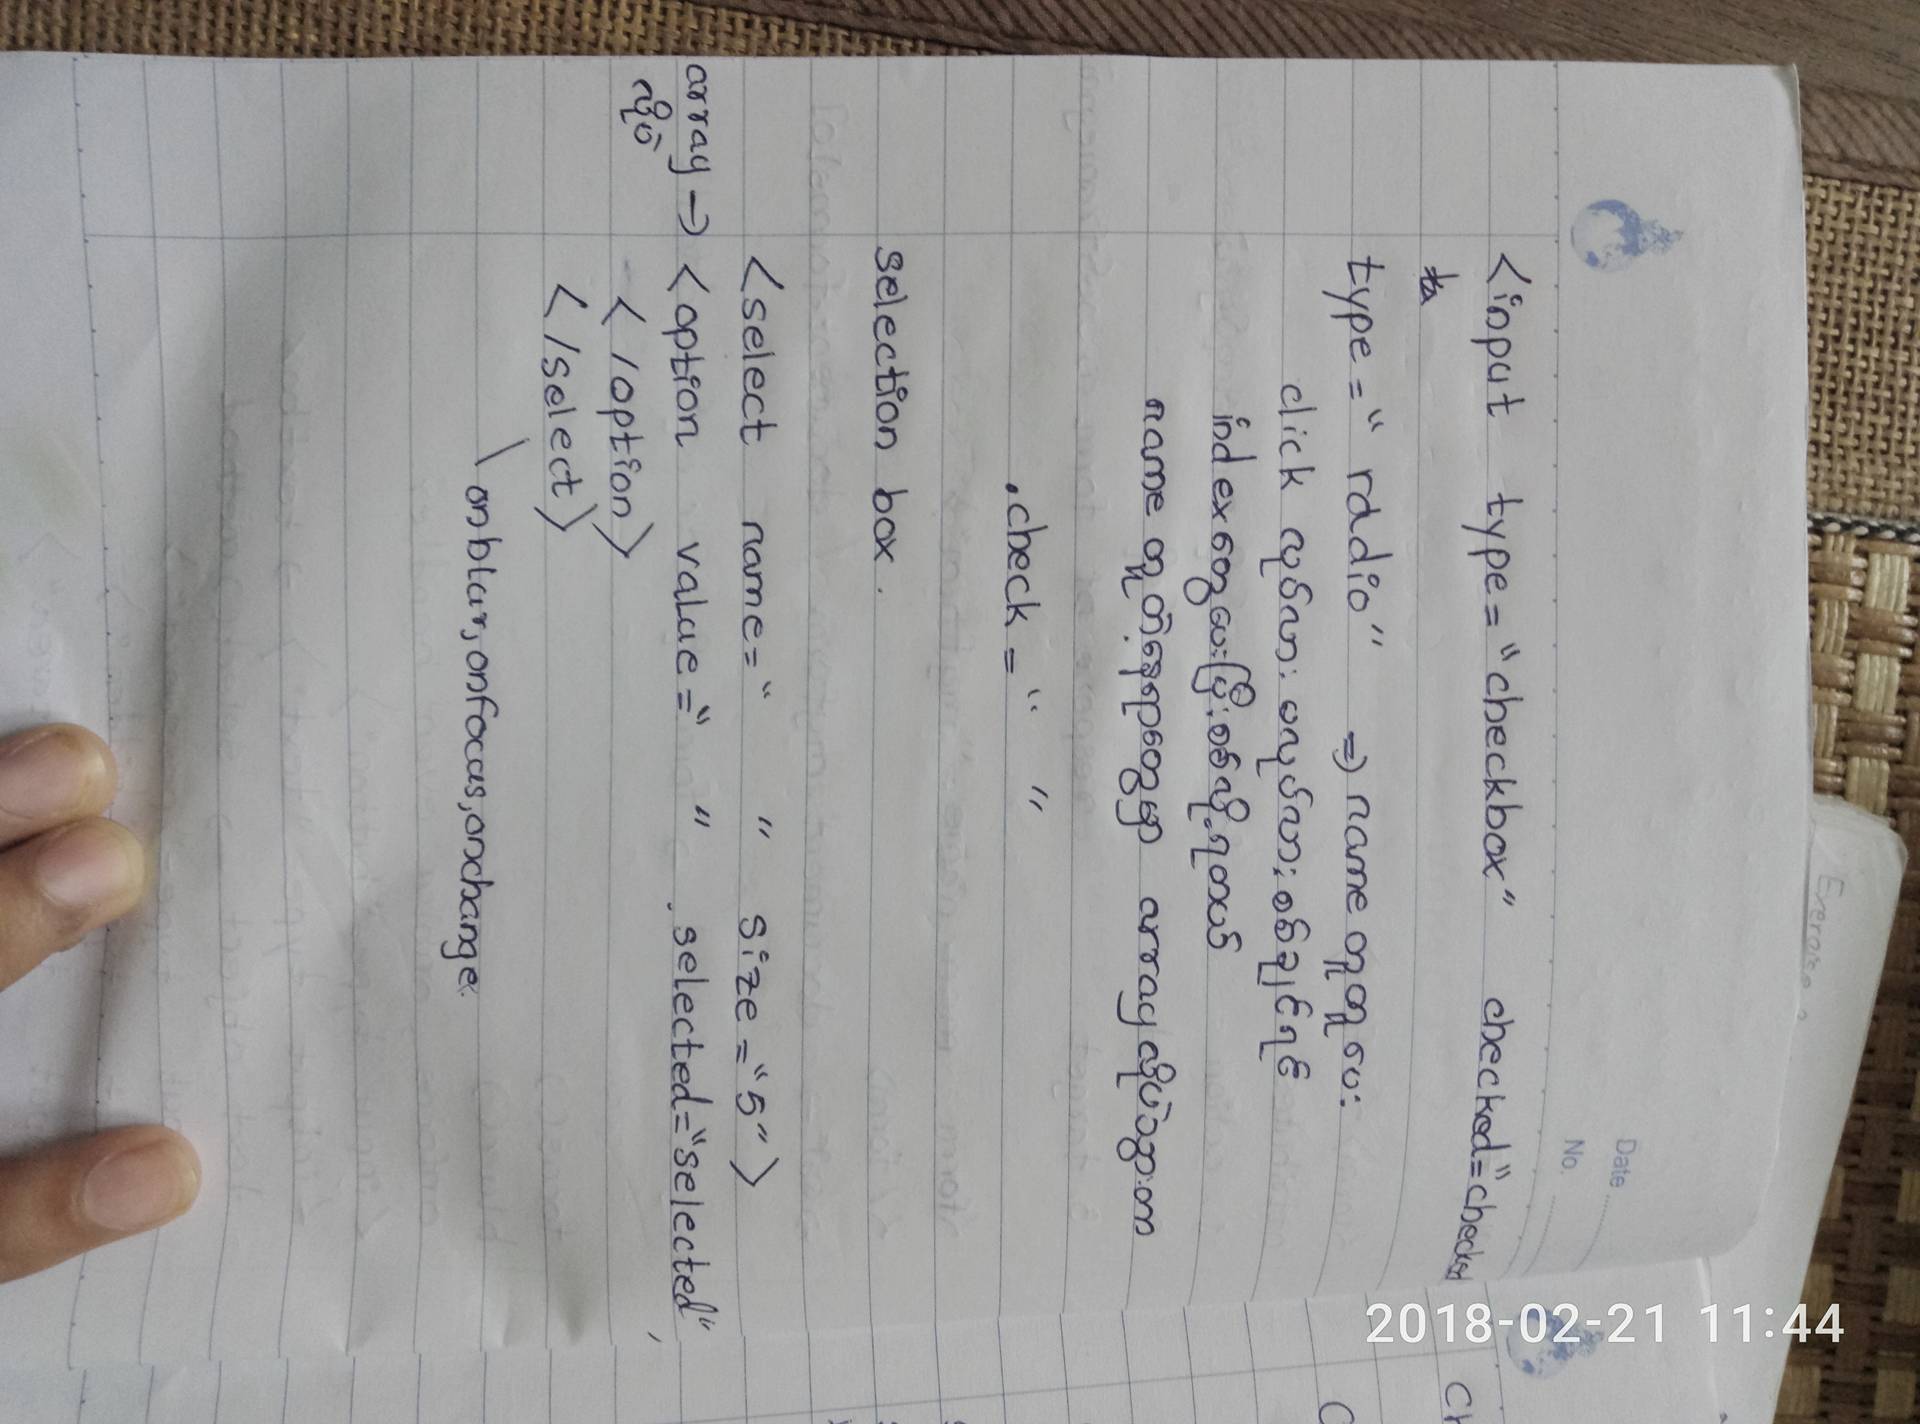 Date
No.
<input type="checkbox" checked="checked
type="rddio" => name တူတူပေး
click လုပ်လား မလုပ်လား စစ်ချင်ရင်
index တွေပေးပြီး စစ်လို့ရတယ်
name တူတဲ့နေရာတွေမှာ array လိုပဲသွားတာ
.check = " "
selection box.
<select name=" " size="5">
array → <option value=" " , selected="selected"
လိုပဲ </option>
</select>
\ onblur, onfocus, onchange.
Exercise
2018-02-21 11:44